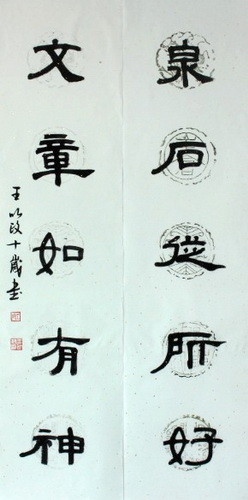 泉石從所好
文章如有神
王以政十歲書